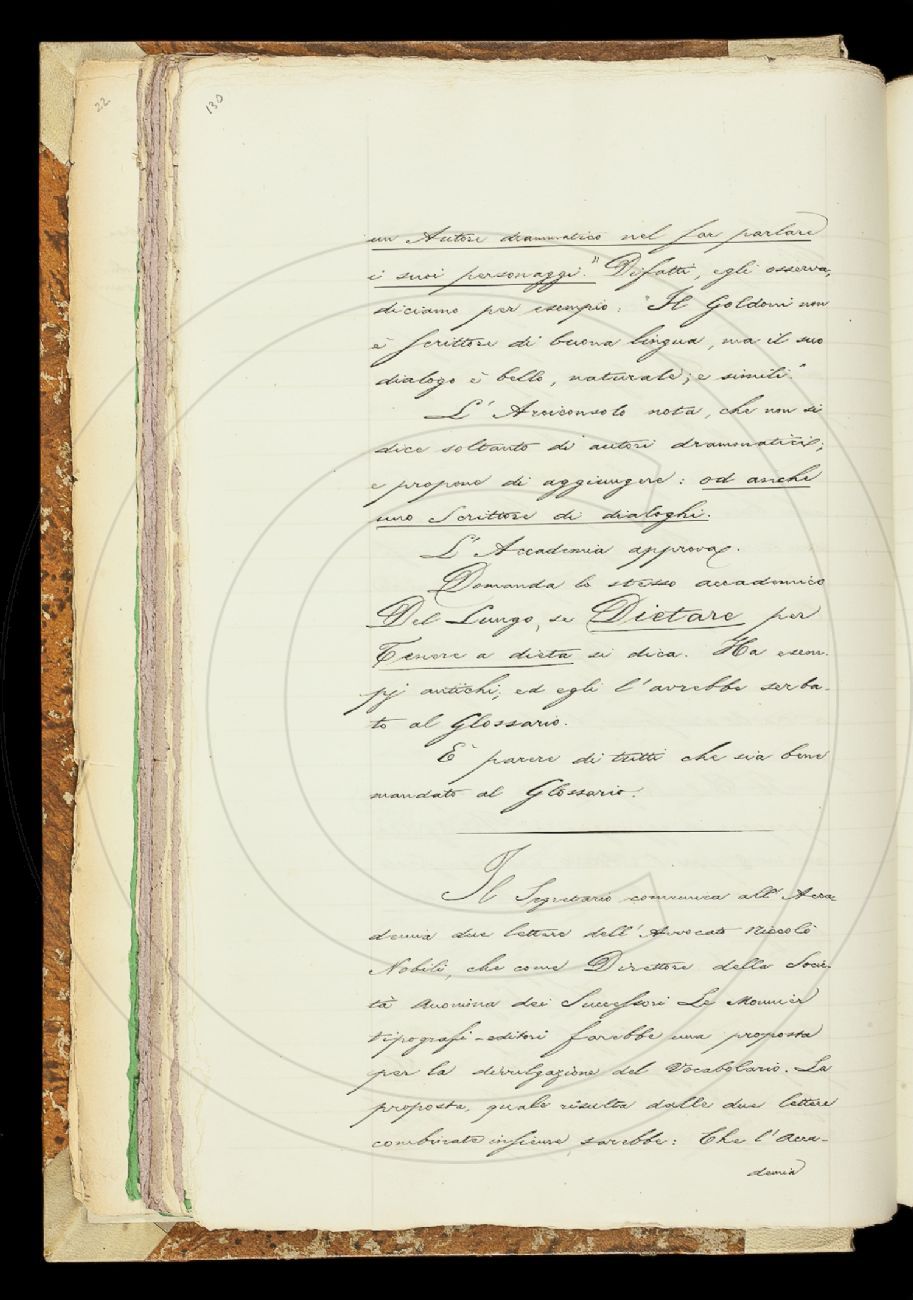 22
130
un Autore drammatico nel far parlare
i suoi personaggi." Difatti, egli osserva,
diciamo per esempio: "Il Goldoni non
è scrittore di buona lingua, ma il suo
dialogo è bello, naturale; e simili."
L'Arciconsolo nota, che non si
dice soltanto di autori drammatici;
e propone di aggiungere: od anche
uno Scrittore di dialoghi.
L'Accademia approva.
Domanda lo stesso accademico
Del Lungo, se Dietare per
Tenere a dieta si dica. Ha esem-
pj antichi; ed egli l'avrebbe serba-
to al Glossario.
È parere di tutti che sia bene
mandato al Glossario.
Il Segretario comunica all'Acca-
demia due lettere dell'Avvocato Niccolò
Nobili, che come Direttore della Socie-
tà Anonima dei Successori Le Monnier
tipografi-editori farebbe una proposta
per la divulgazione del Vocabolario. La
proposta, quale risulta dalle due lettere
combinate insieme, sarebbe: Che l'Acca-
demia